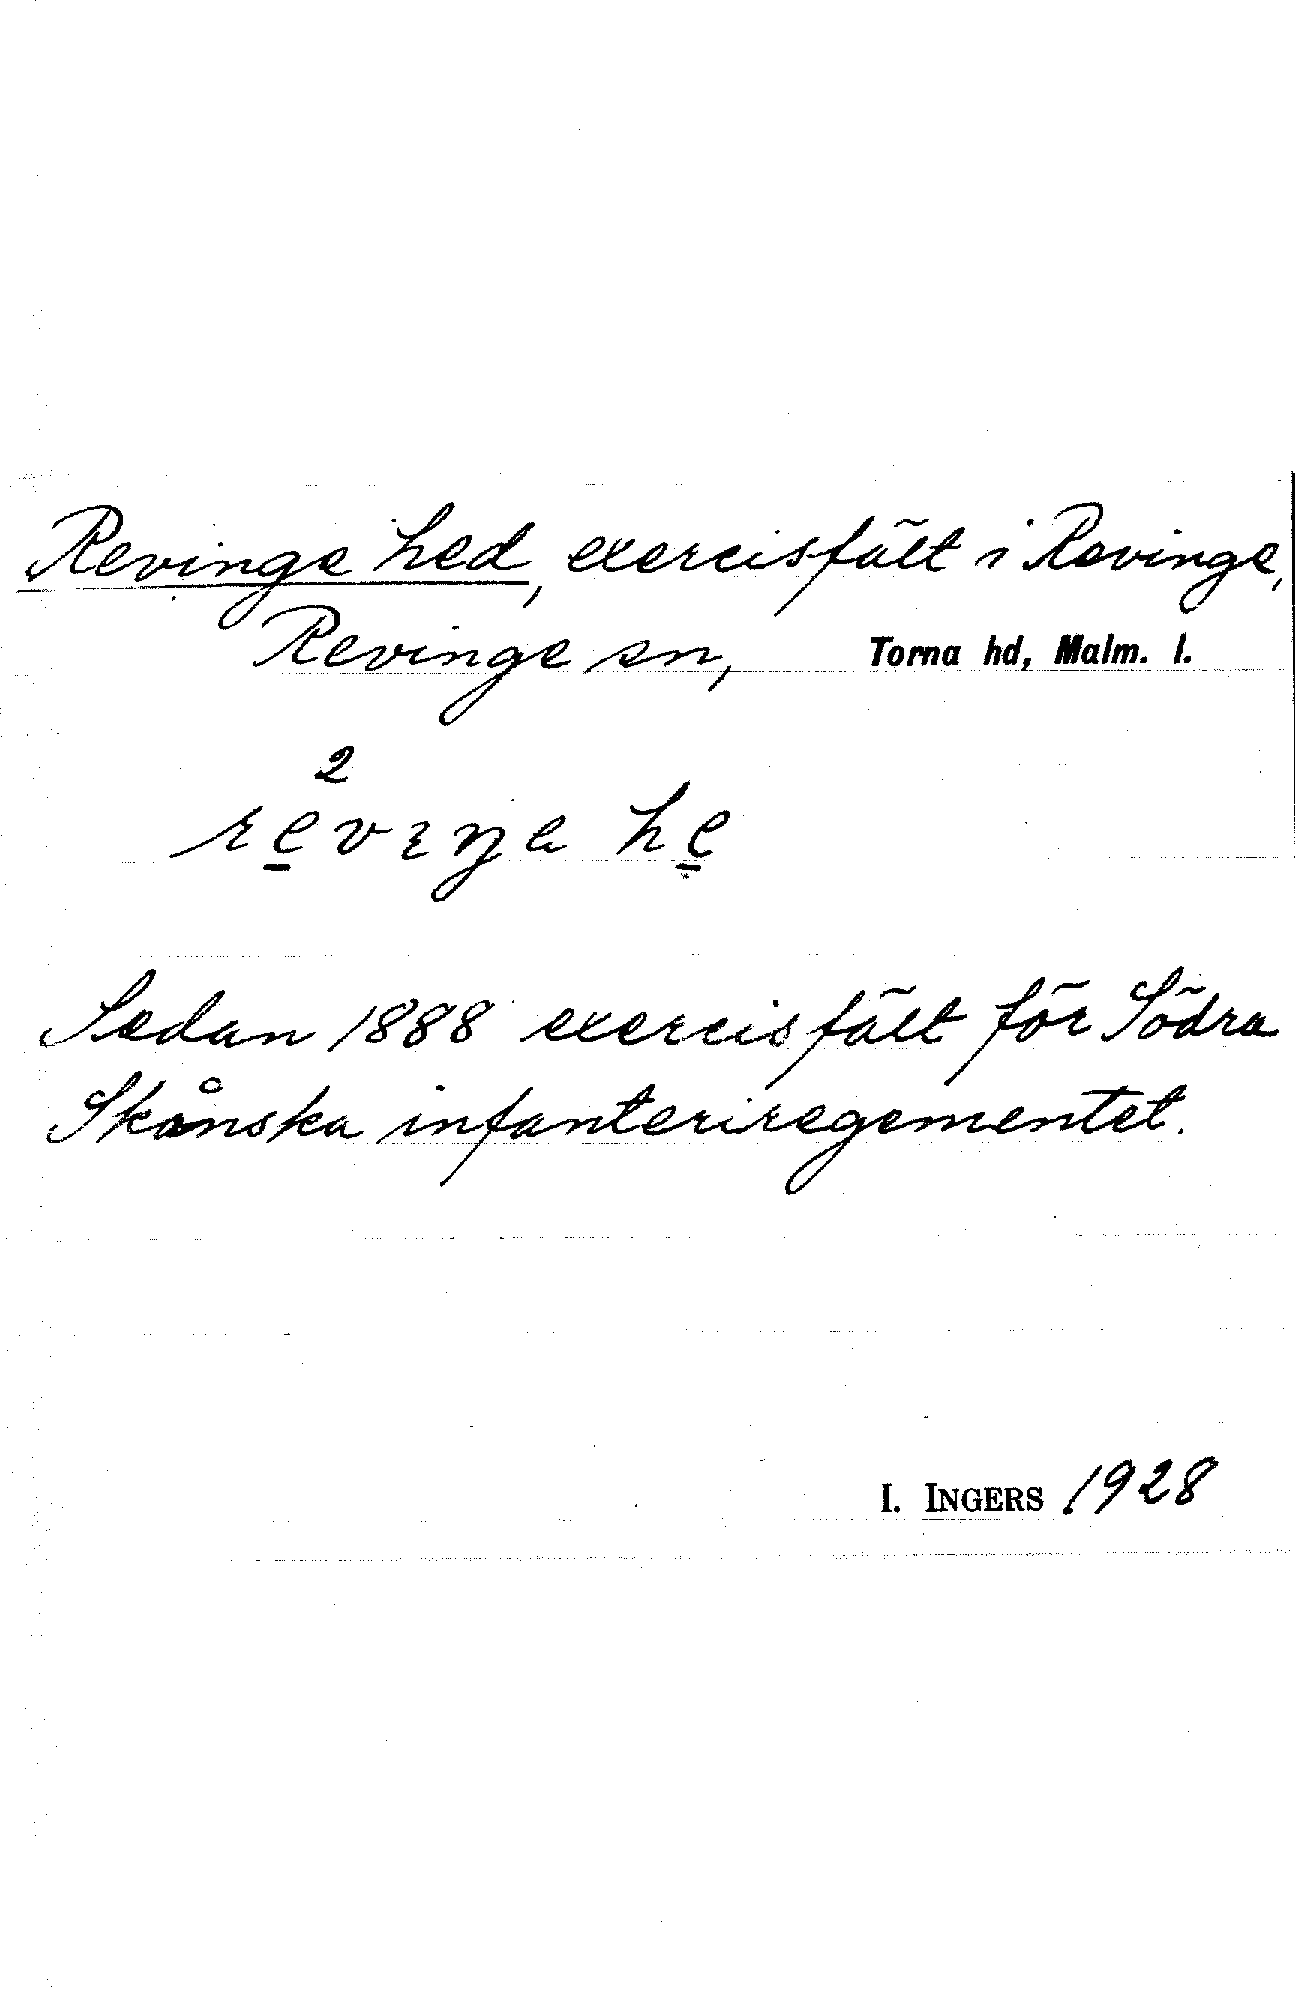 Revinge hed, exercisfält i Revinge,
Revinge sn, Torna hd, Malm. l.
2
re̱vıŋa he̱
Sedan 1888 exercisfält för Södra
Skånska infanteriregementet.
I. INGERS 1928